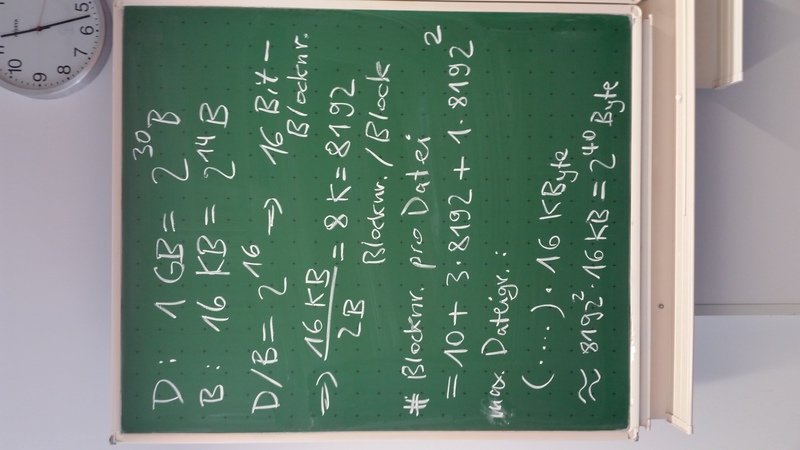 D: 1 GB = 2^30 B
B: 16 KB = 2^14 B
D/B = 2^16 → 16 Bit-
Blocknr.
⇒ 16 KB / 2B = 8K = 8192
Blocknr. / Block
# Blocknr. pro Datei
= 10 + 3·8192 + 1·8192^2
max. Dateigr.:
(....)·16 KByte
≈ 8192^2·16 KB = 2^40 Byte
10 9 8 7 6 5